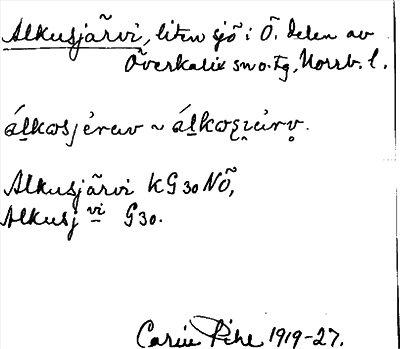 Alkusjärvi, liten sjö i Ö. delen av
Överkalix sn o. tg, Norrb. l.
álkosjėrav ~ álkoʂi̯ärv̥.
Alkusjärvi KG 30 NÖ,
Alkusj vi G30.
Carin Pihl 1919-27.